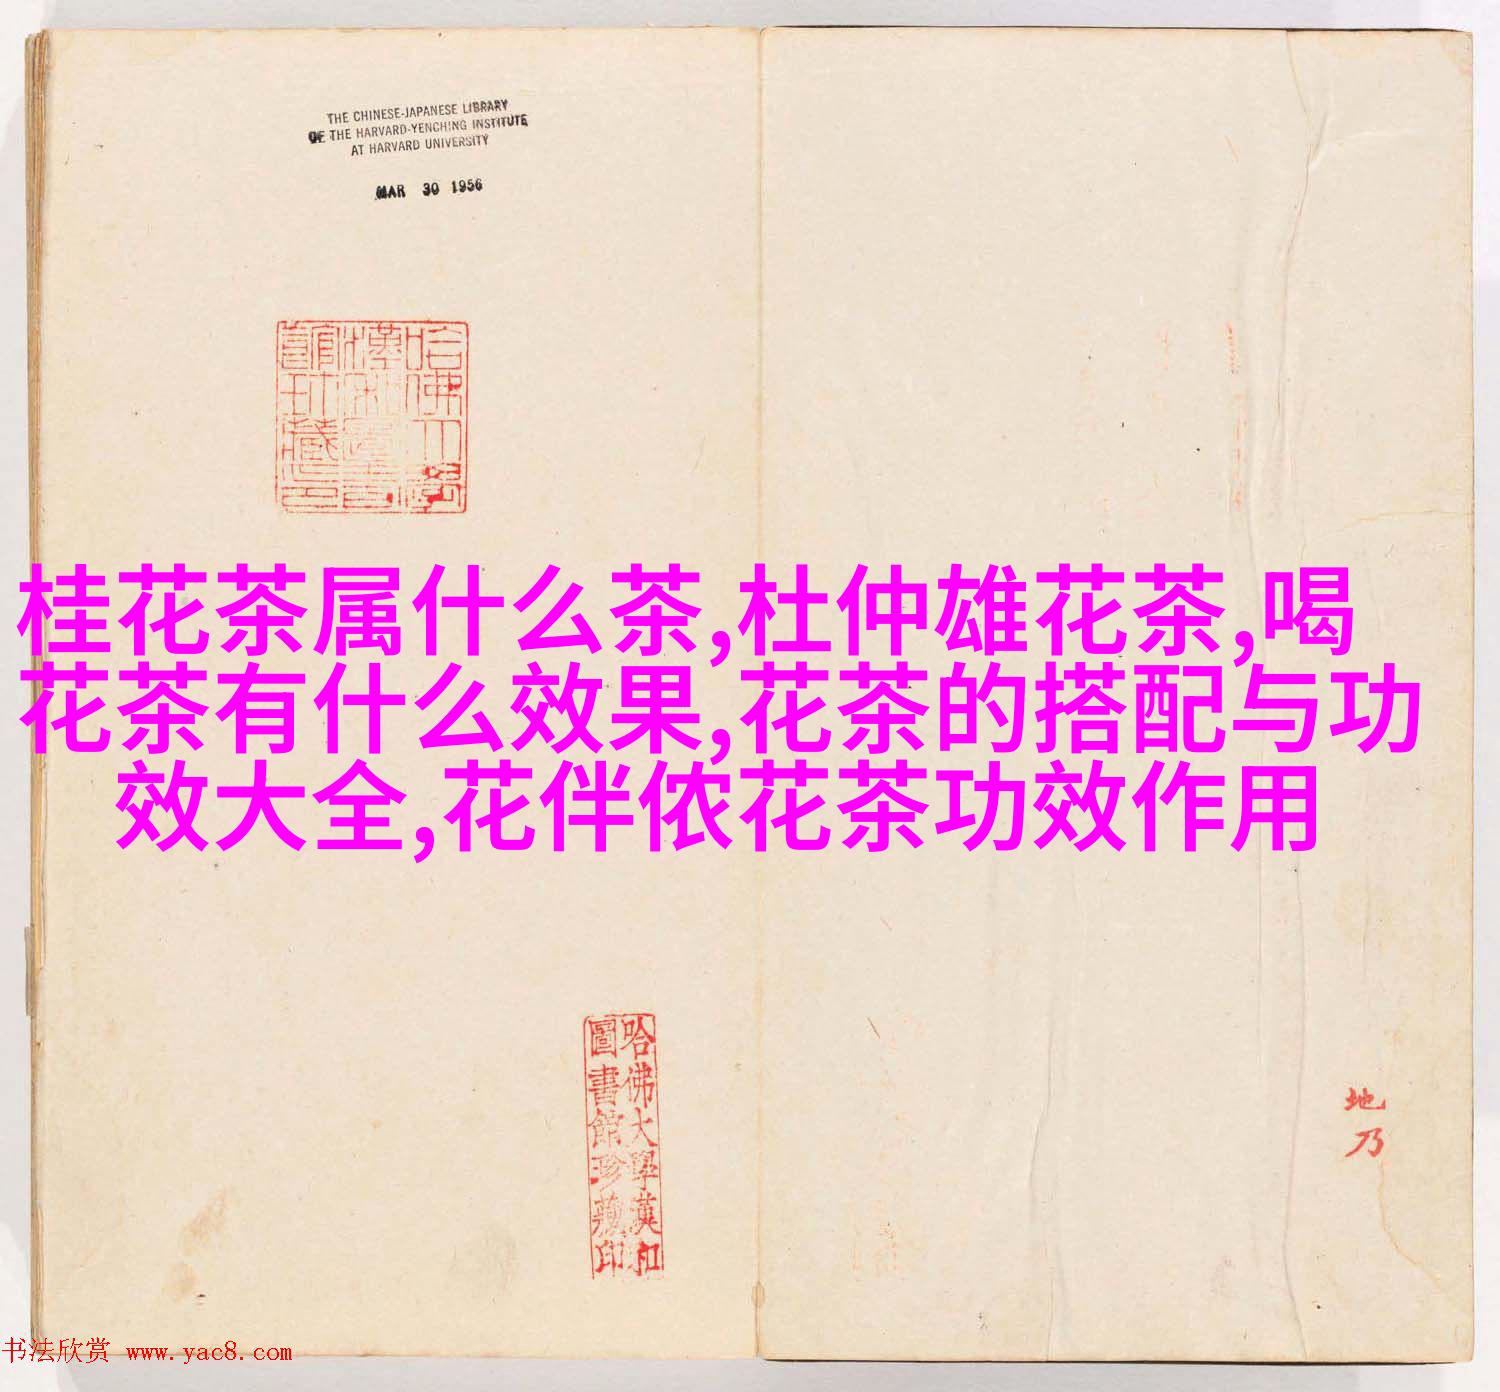 THE CHINESE-JAPANESE LIBRARY
OF THE HARVARD-YENCHING INSTITUTE
AT HARVARD UNIVERSITY
MAR 30 1956
哈佛大學
漢和圖書
館珍藏印
桂花茶属什么茶,杜仲雄花茶,喝
花茶有什么效果,花茶的搭配与功
效大全,花伴侬花茶功效作用
哈佛大學漢和
圖書館珍藏印
地
乃
书法欣赏 www.yac8.com